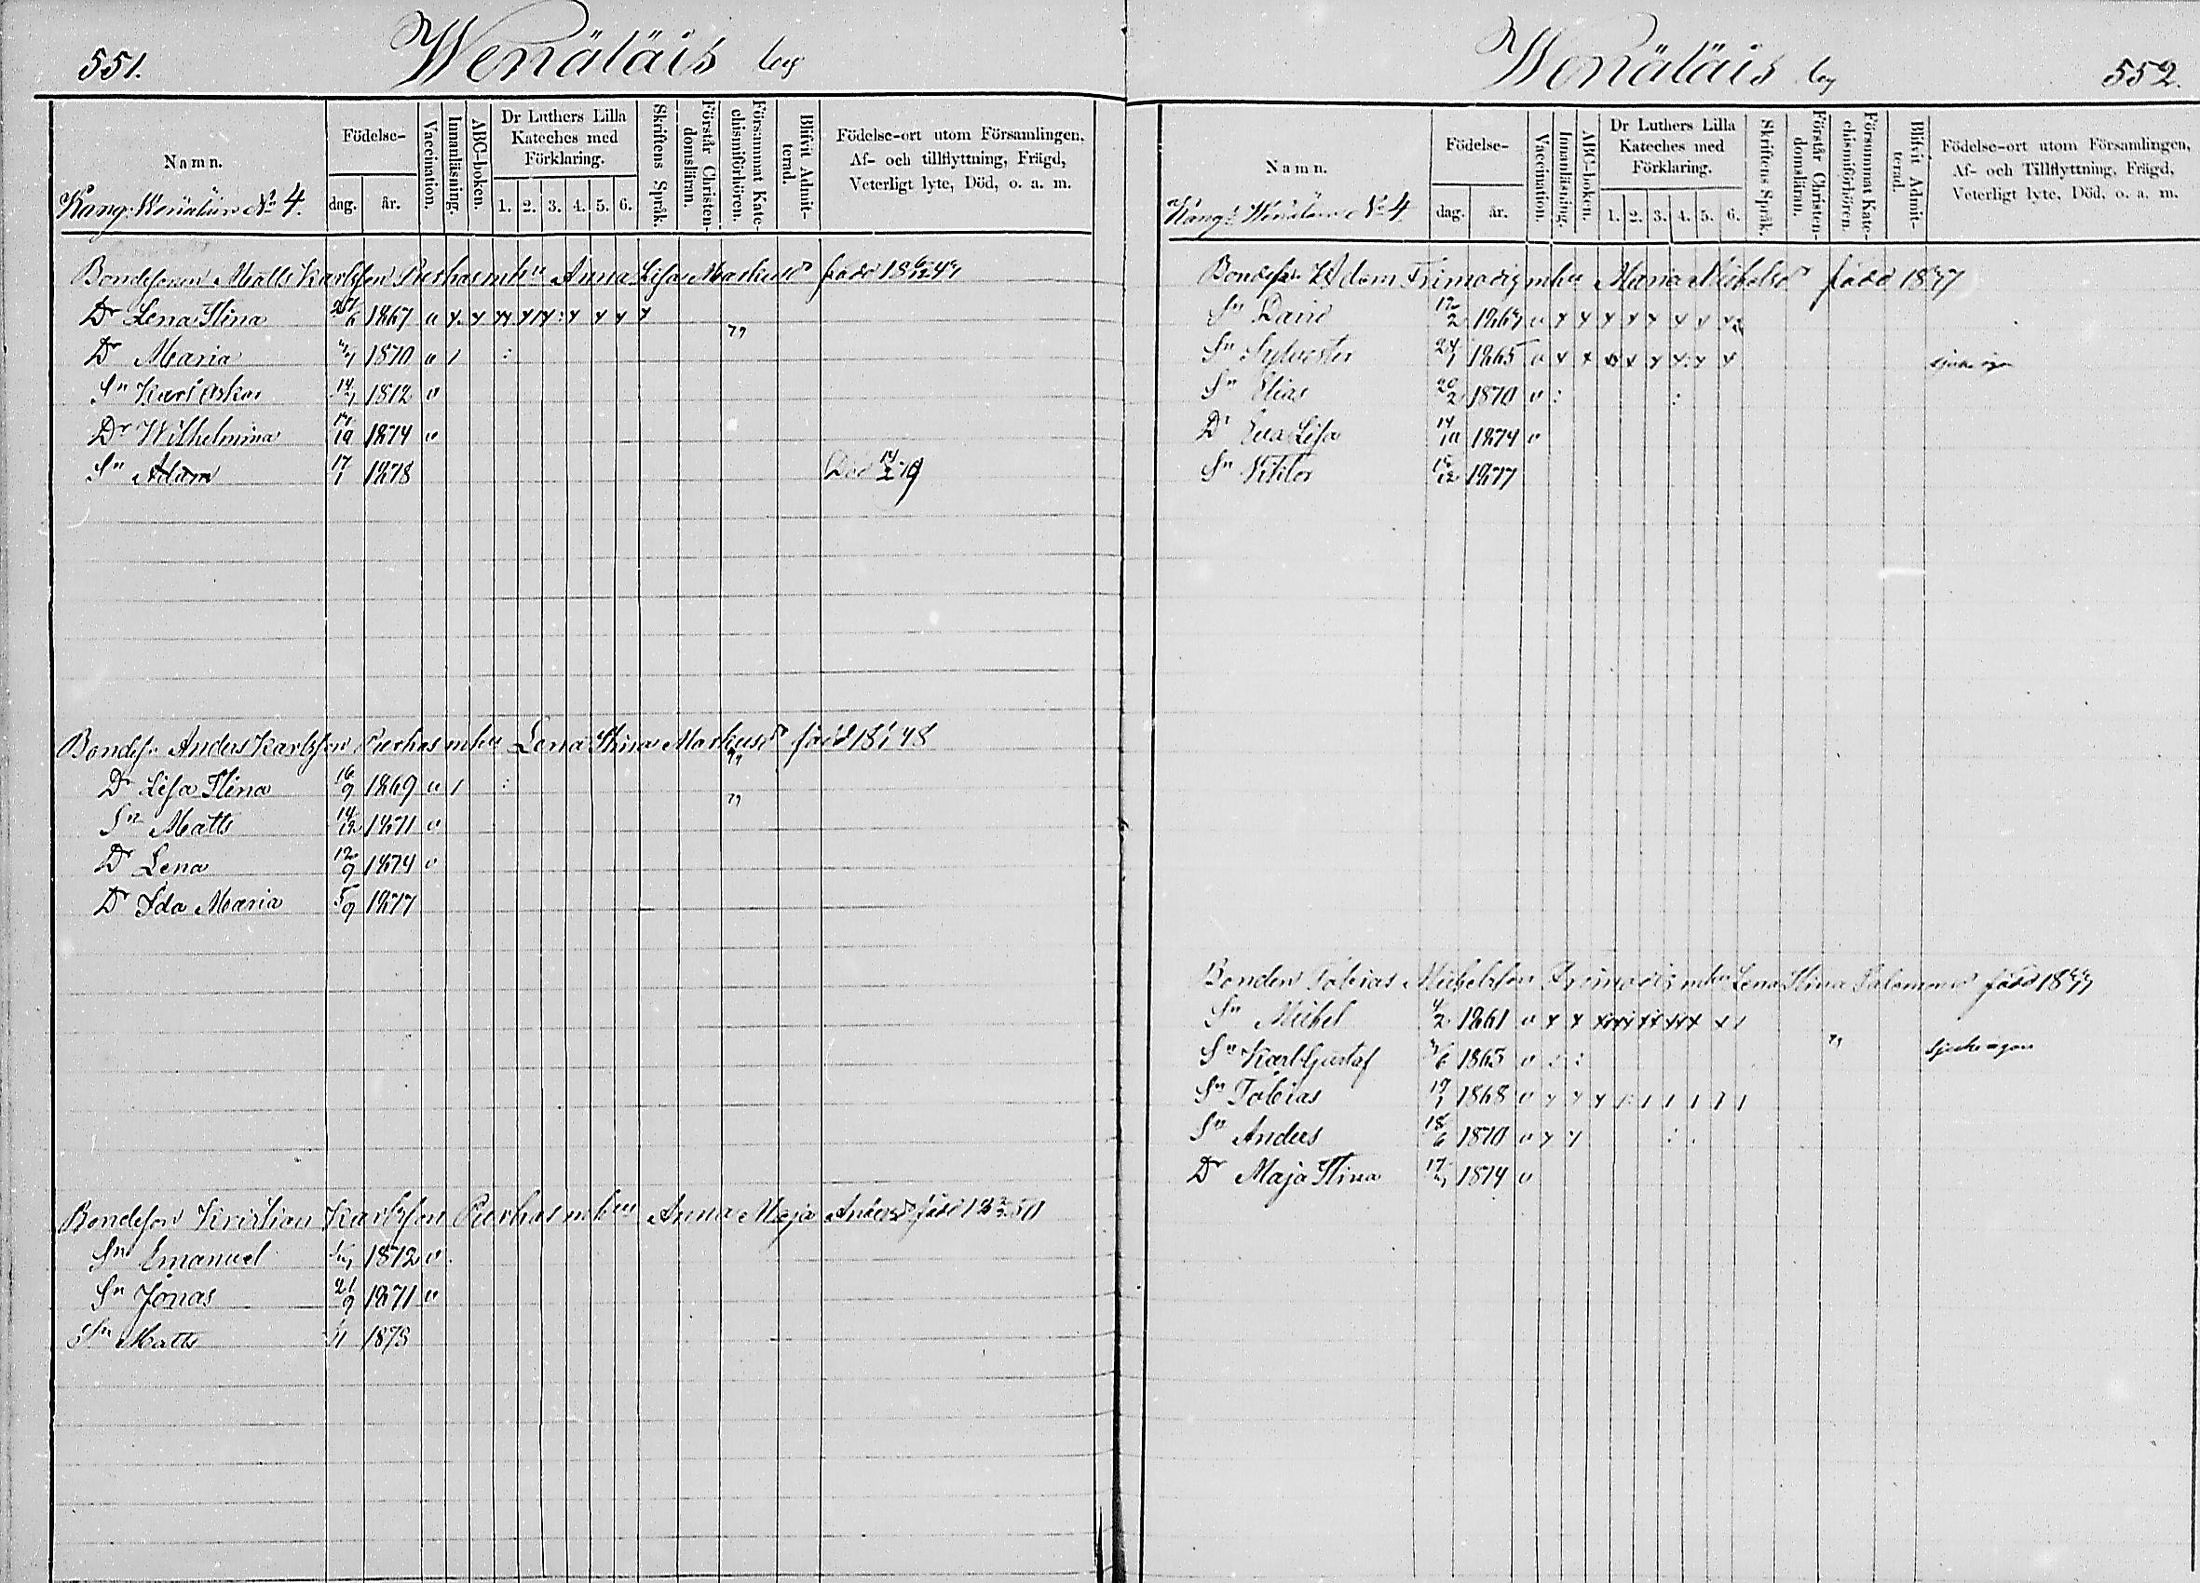 551.
Wenäläis by
Namn.
Födelse-
dag.
år.
Vaccination.
Innanläsning.
ABC-boken.
Dr Luthers Lilla Kateches med Förklaring.
1. 2. 3. 4. 5. 6.
Skriftens Språk.
Förstår Christen-domsläran.
Försummat Kate-chismiförhören.
Blifvit Admit-terad.
Födelse-ort utom Församlingen,
Af- och tillflyttning, Frägd,
Veterligt lyte, Död, o. a. m.
No 4.
Bondesonen Matts Karlsson Purhas Anna Lisa Markusdr född
Dr Lena Stina 1867
Dr Maria 1870
Sn Karl Oskar 14 1872
Dr Wilhelmina 10 1874
Sn Adam 17/1 1878 Död 14/2 79
Bondes. Anders Karlsson Purhas Lena Stina Markusdr född 18 48
Dr Lisa Stina 16/9 1869
Sn Matts 1871
Dr Lena 12/9 1874
Dr Ida Maria 5/9 1877
Bondeson Kristian Karlsson Purhas Anna Maja Andersdr född 50
Sn Emanuel 1872
Sn Jonas 21/9 1871
Sn Matts 1878
Wenäläis by
552.
Namn.
Födelse-
dag.
år.
Vaccination.
Innanläsning.
ABC-boken.
Dr Luthers Lilla Kateches med Förklaring.
1. 2. 3. 4. 5. 6.
Skriftens Språk.
Förstår Christen-domsläran.
Försummat Kate-chismiförhören.
Blifvit Admit-terad.
Födelse-ort utom Församlingen,
Af- och Tillflyttning, Frägd,
Veterligt lyte, Död, o. a. m.
No 4
Adam Frimodig Maria Michelsdr född
Sn David 12/2
Sn Sylvester 24/1 1865
Sn Elias 20/2 1870
Dr Eva Lisa 14/10 1874
Sn Viktor 12 1877
Bonden Tobias Michelsson Frimodig Lena Stina Salomonsd född
Sn Michel 2 1861
Sn Karl Gustaf 6 1865
Sn Tobias 1 1868
Sn Anders 18/6 1870
Dr Maja Stina 17 1874